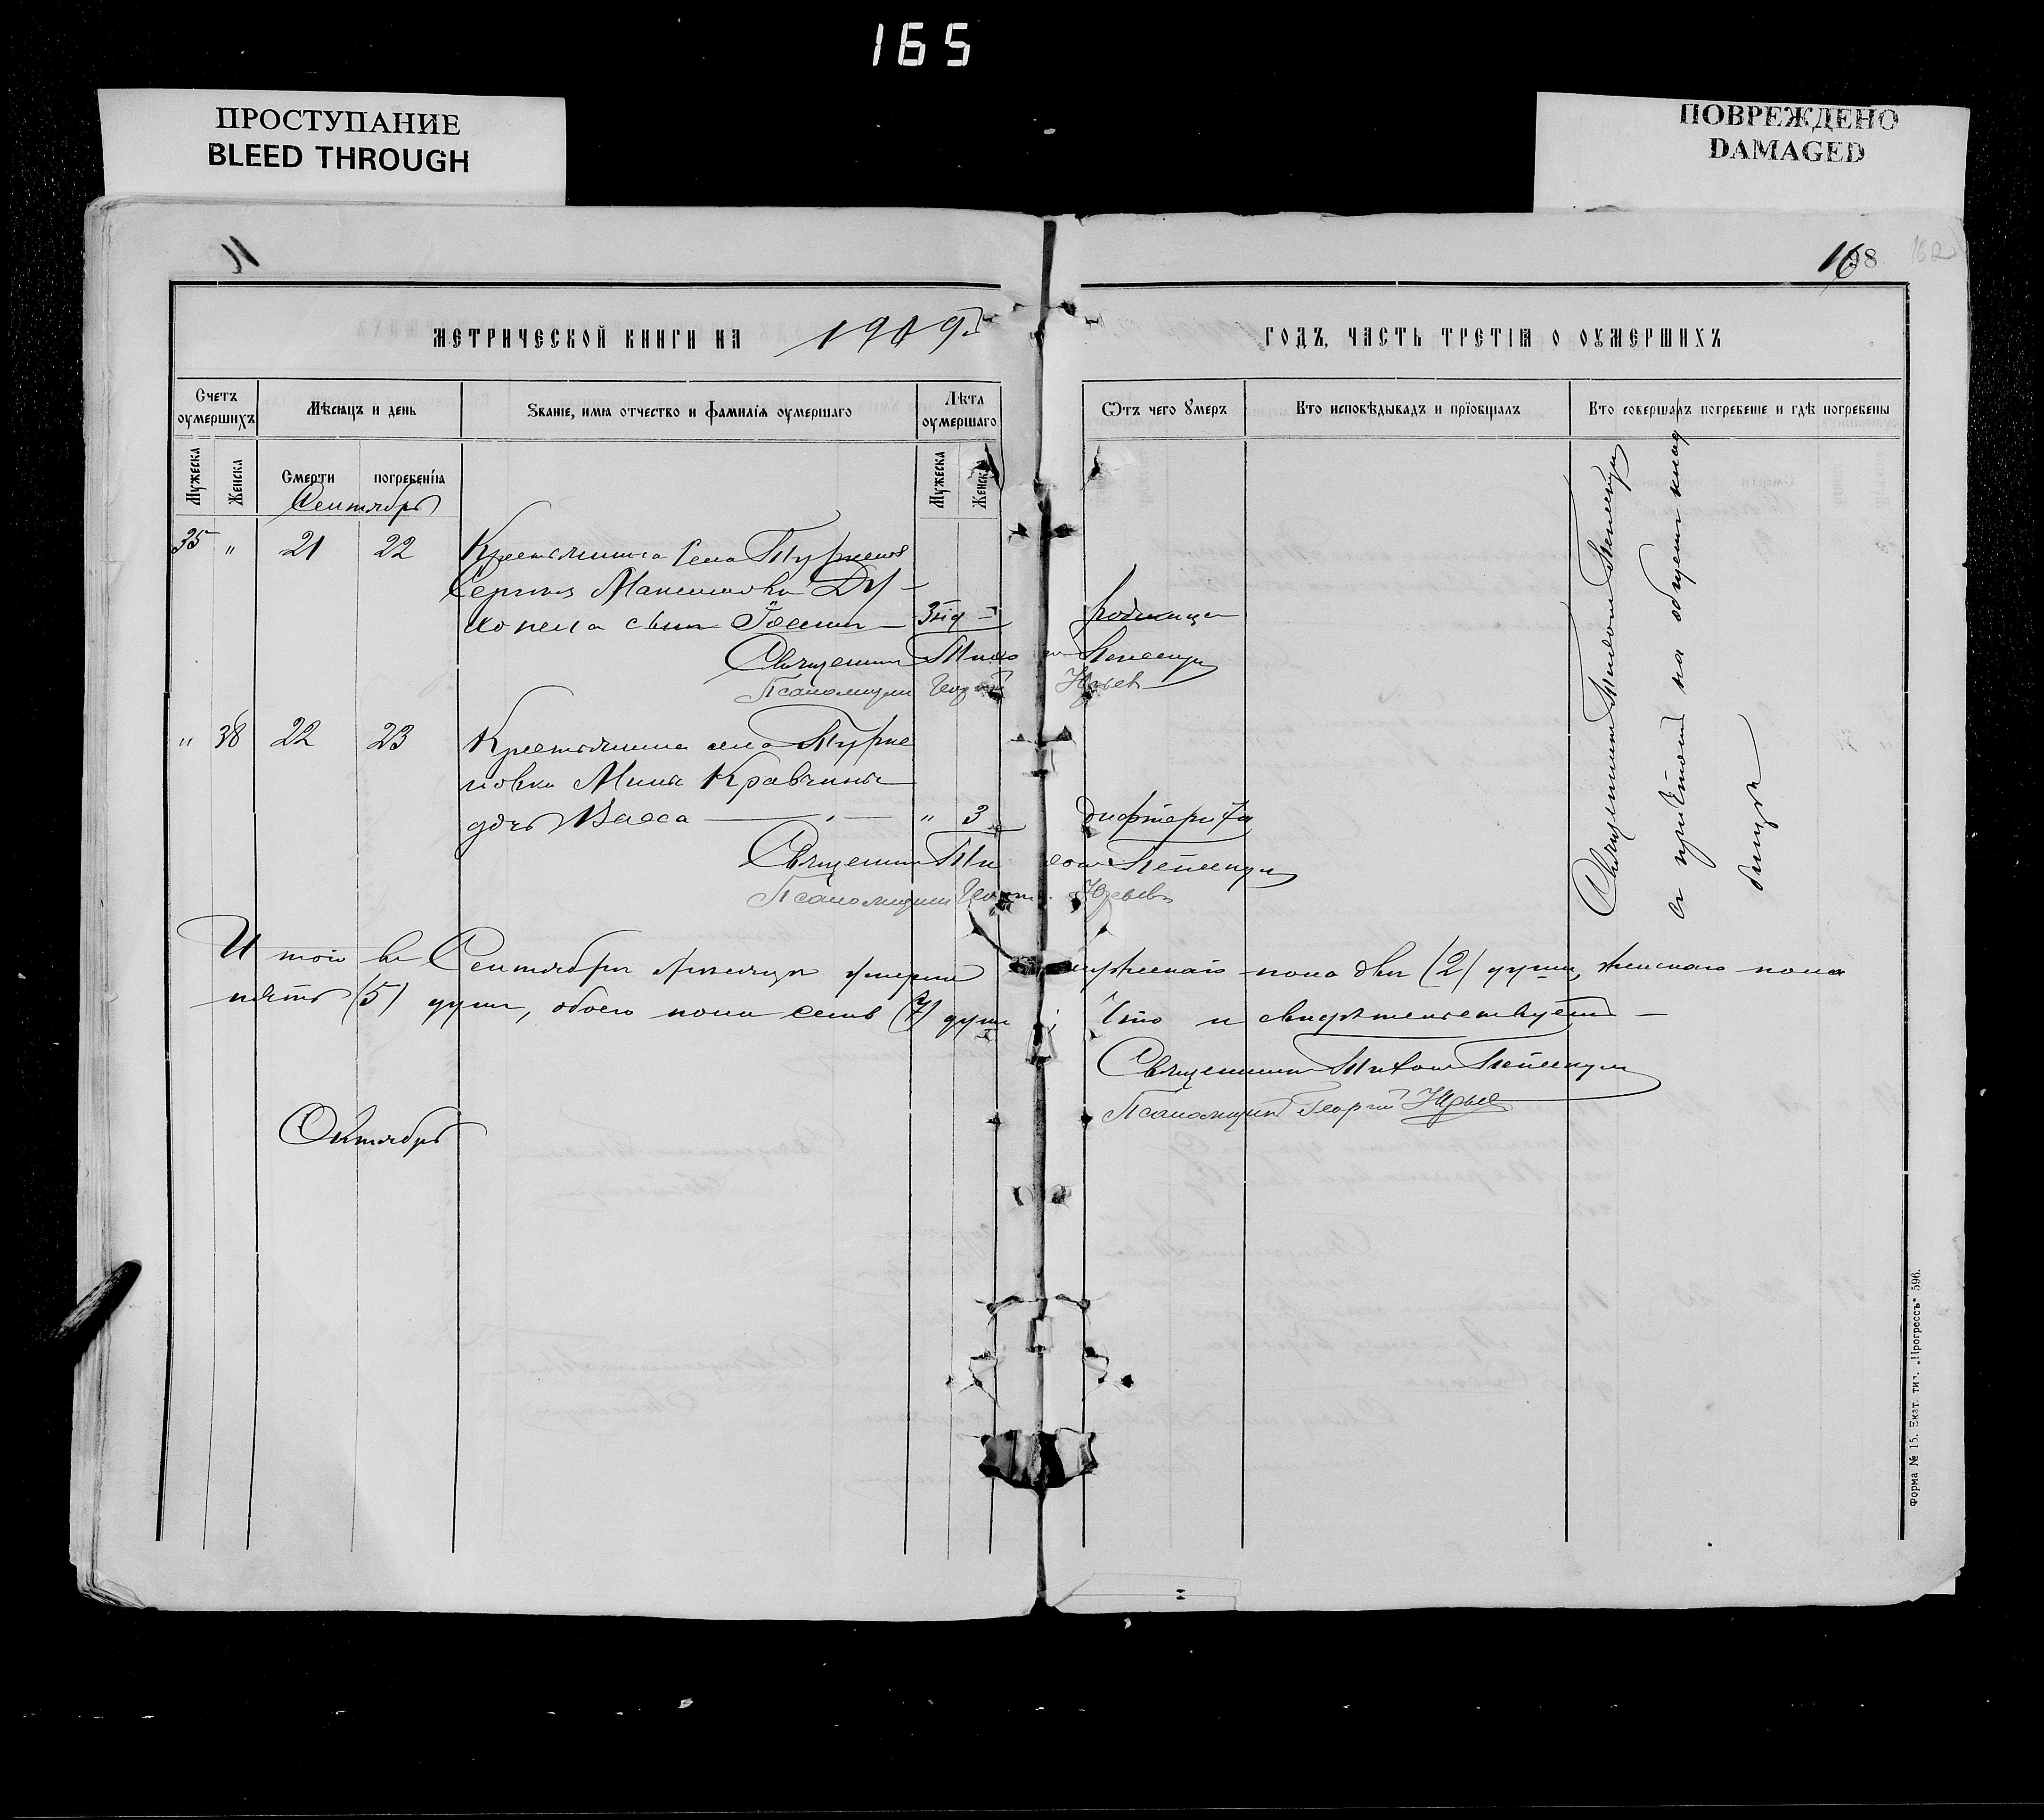 165
ПРОСТУПАНИЕ
BLEED THROUGH
ПОВРЕЖДЕНО
DAMAGED
168
162
МЕТРИЧЕСКОЙ КНИГИ НА 1909 ГОДЪ, ЧАСТЬ ТРЕТІѦ О ОУМЕРШИХЪ
Счетъ оумершихъ
Мѣсѧцъ и день
Званіе, имѧ отчество и фамиліѧ оумершаго
Лѣта оумершаго
Ѿтъ чего оумеръ
Кто исповѣдывалъ и пріобщалъ
Кто совершалъ погребеніе и гдѣ погребены
Мужеска
Женска
Смерти
погребеніѧ
Мужеска
Женска
Сентябрь
35 " 21 22 Крестьянина села
Сергія Максимова
сынъ родимца
Священникъ Тихонъ
Псаломщикъ Георгій Юрьев
" 38 22 23 Крестьянина села
Мины Кравчины
дочь Васса " 3 дифтерита
Священникъ Тихонъ
Псаломщикъ Георгій Юрьевъ
Священникъ Тихонъ
съ причтомъ на общем клад
бищѣ
Итого въ Сентябрѣ мѣсяцѣ умерло мужескаго пола двѣ (2) души, женскаго пола
пять (5) душъ, обоего пола семь (7) душъ
Что и свидѣтельствуемъ
Священникъ Тихонъ
Псаломщикъ Георгій Юрьев
Октябрь
Форма № 15. Екат. тип. „Прогрессъ" 596.